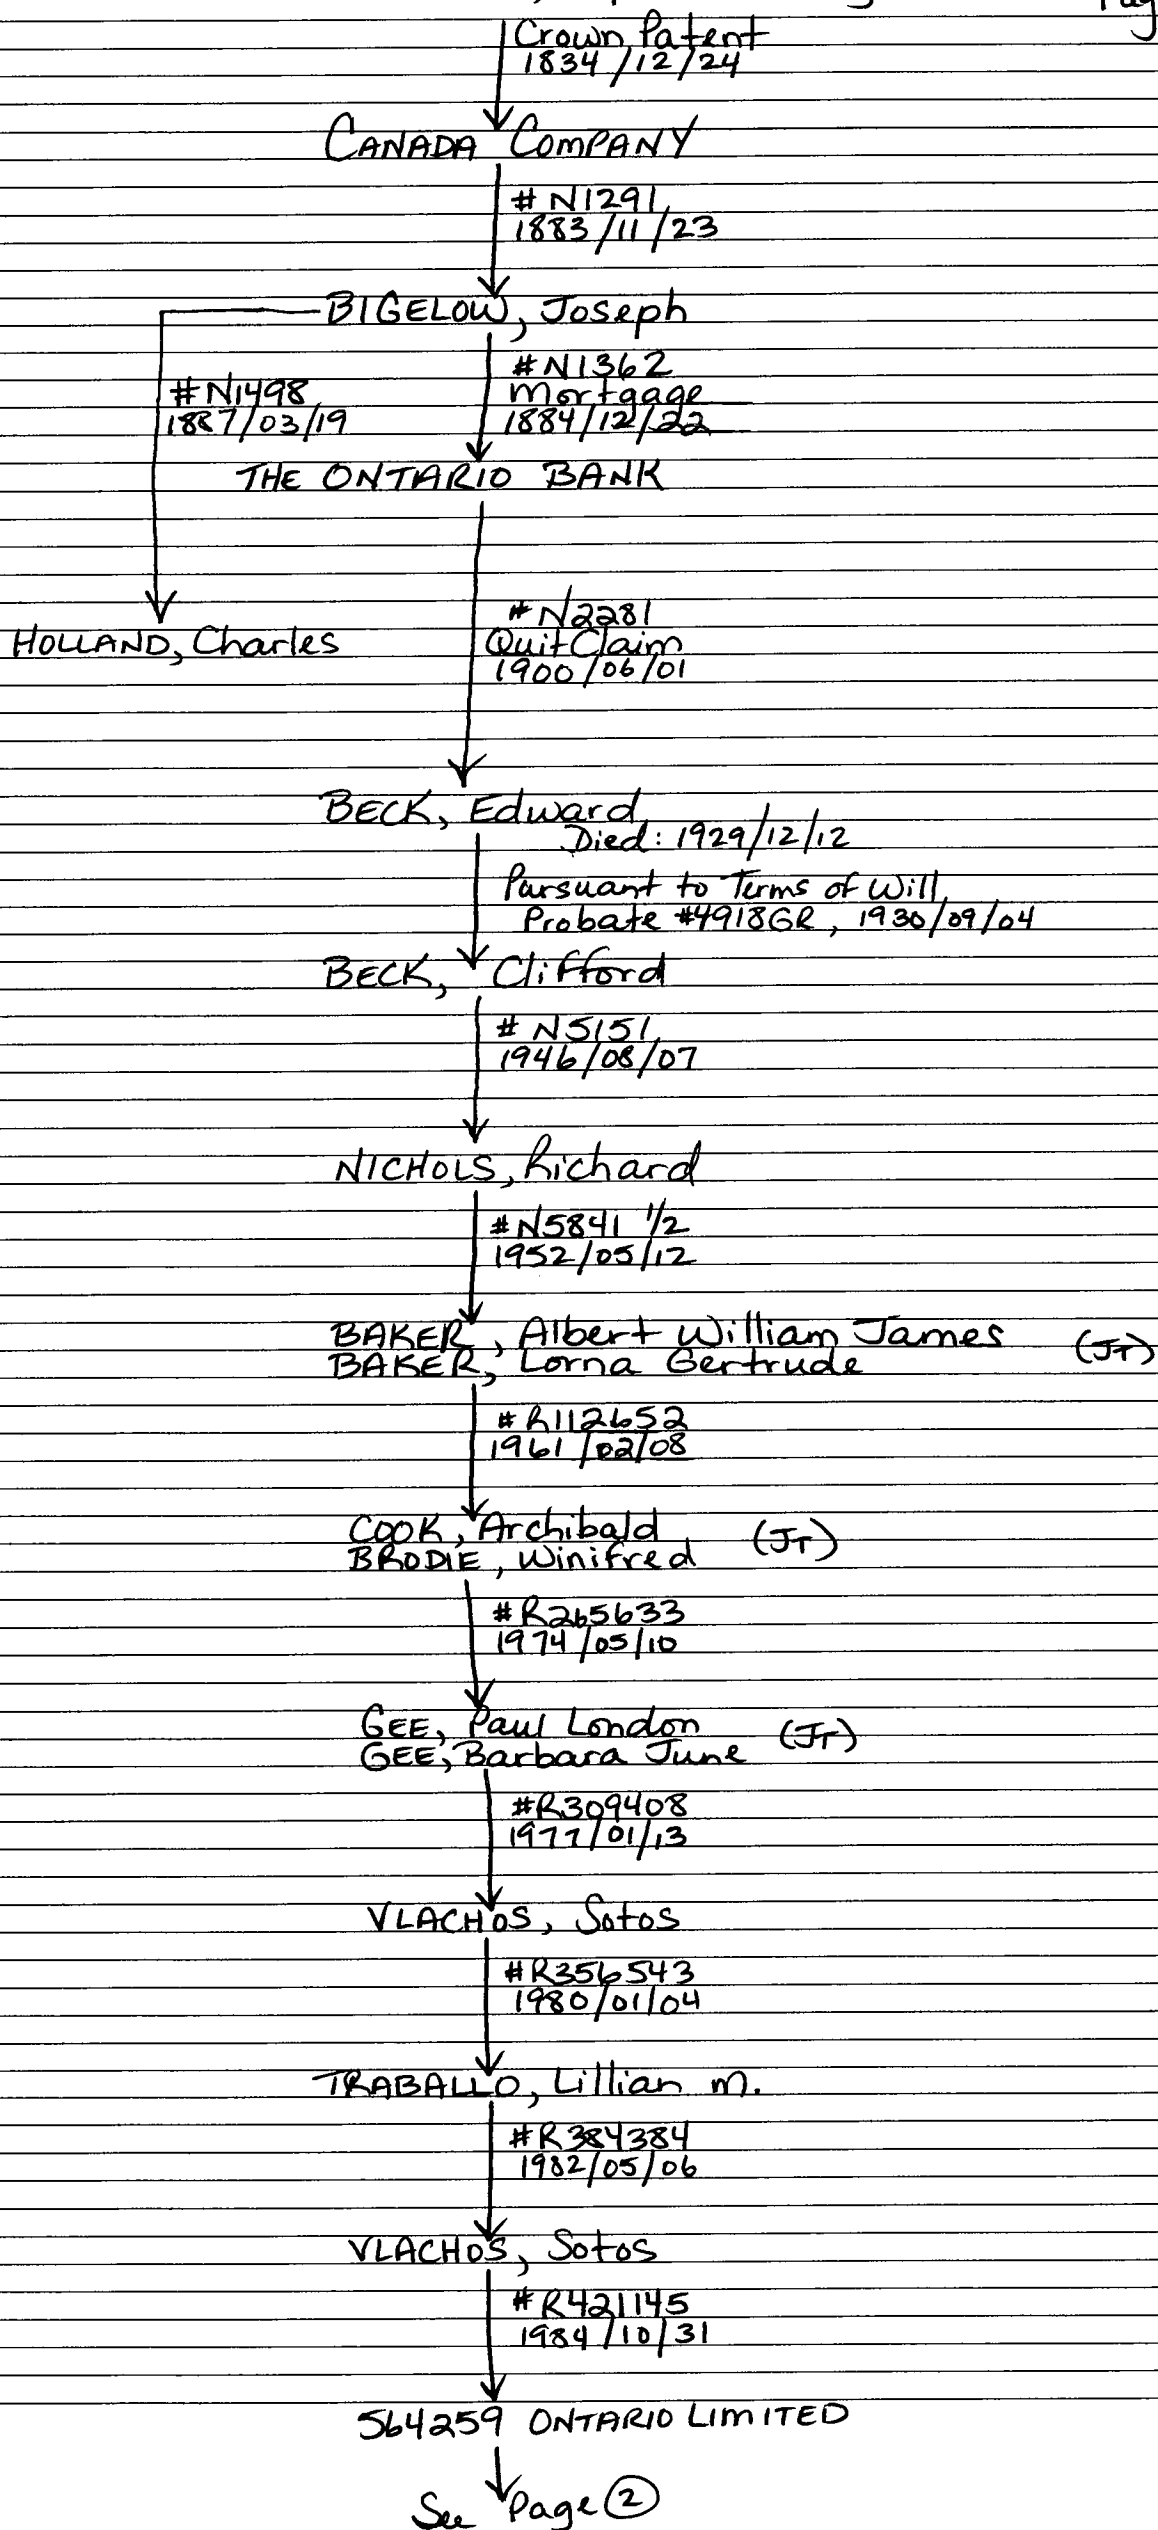 Crown Patent
1834/12/24
CANADA COMPANY
#N1291
1883/11/23
BIGELOW, Joseph
#N1498
1887/03/19
#N1362
Mortgage
1884/12/22
THE ONTARIO BANK
HOLLAND, Charles
#N2281
Quit Claim
1900/06/01
BECK, Edward
Died: 1929/12/12
Pursuant to Terms of Will
Probate #4918GR, 1930/09/04
BECK, Clifford
#N5151
1946/08/07
NICHOLS, Richard
#N5841 1/2
1952/05/12
BAKER, Albert William James (JT)
BAKER, Lorna Gertrude
#R112652
1961/02/08
COOK, Archibald (JT)
BRODIE, Winifred
#R265633
1974/05/10
GEE, Paul London (JT)
GEE, Barbara June
#R309408
1977/01/13
VLACHOS, Sotos
#R356543
1980/01/04
TRABALLO, Lillian M.
#R384384
1982/05/06
VLACHOS, Sotos
#R421145
1984/10/31
564259 ONTARIO LIMITED
See Page 2